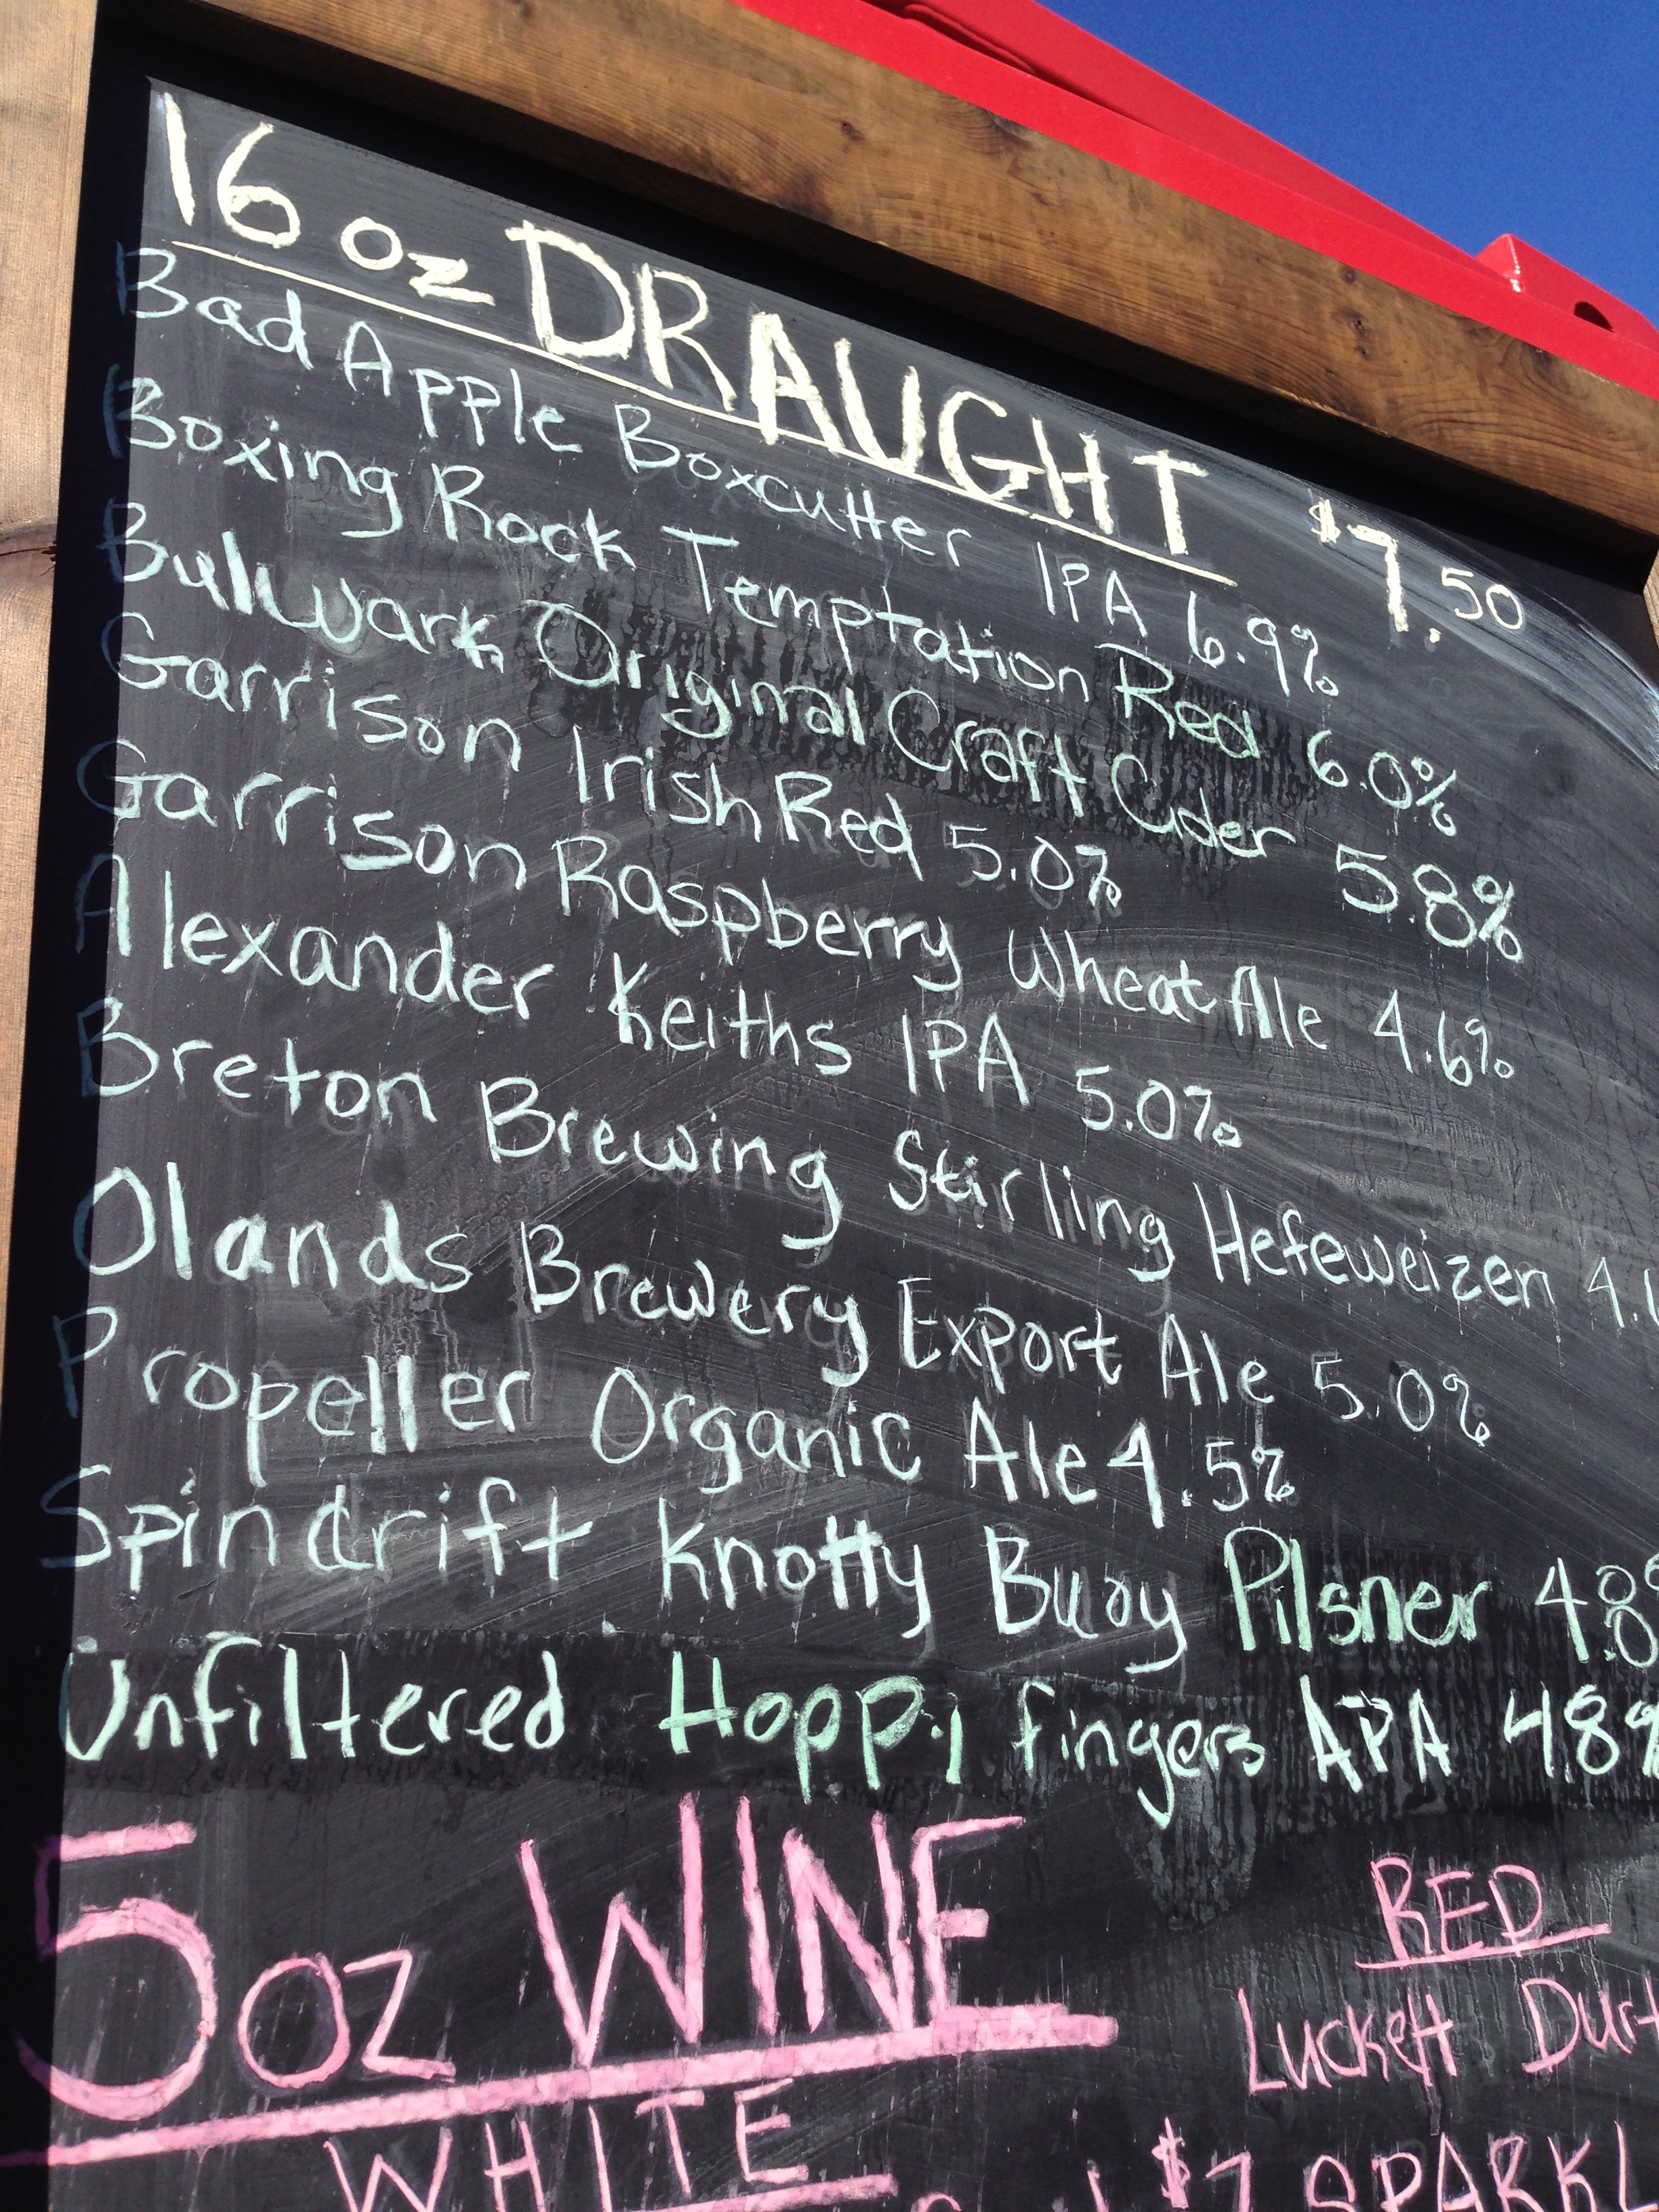 16 oz DRAUGHT $7.50
Bad Apple Boxcutter IPA 6.9%
Boxing Rock Temptation Red 6.0%
Bulwark Original Craft Cider 5.8%
Garrison Irish Red 5.0%
Garrison Raspberry Wheat Ale 4.6%
Alexander Keiths IPA 5.0%
Breton Brewing Stirling Hefeweizen 4.1
Olands Brewery Export Ale 5.0%
Propeller Organic Ale 4.5%
Spindrift Knotty Buoy Pilsner 4.8%
Unfiltered Hoppy Fingers APA 4.8%
5oz WINE
RED
Luckett
WHITE
$7 SPARKL